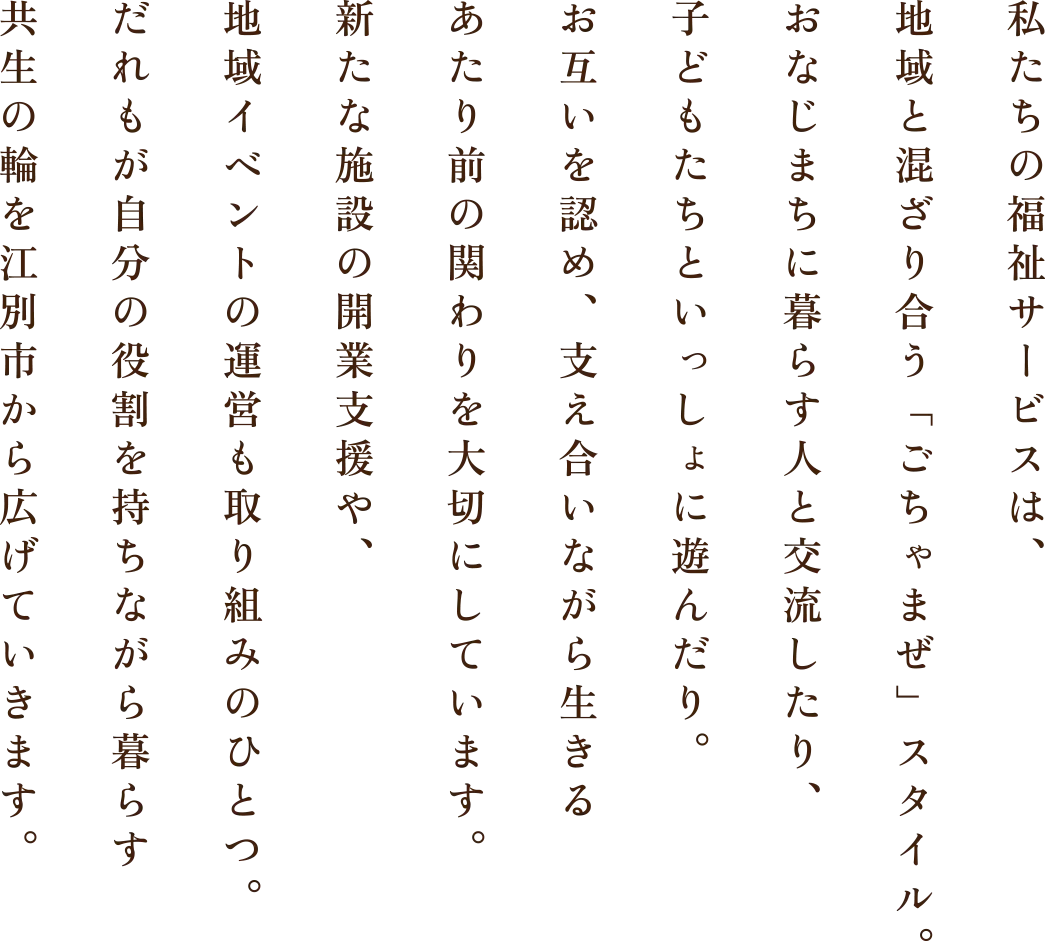 私たちの福祉サービスは、
地域と混ざり合う「ごちゃまぜ」スタイル。
おなじまちに暮らす人と交流したり、
子どもたちといっしょに遊んだり。
お互いを認め、支え合いながら生きる
あたり前の関わりを大切にしています。
新たな施設の開業支援や、
地域イベントの運営も取り組みのひとつ。
だれもが自分の役割を持ちながら暮らす
共生の輪を江別市から広げていきます。